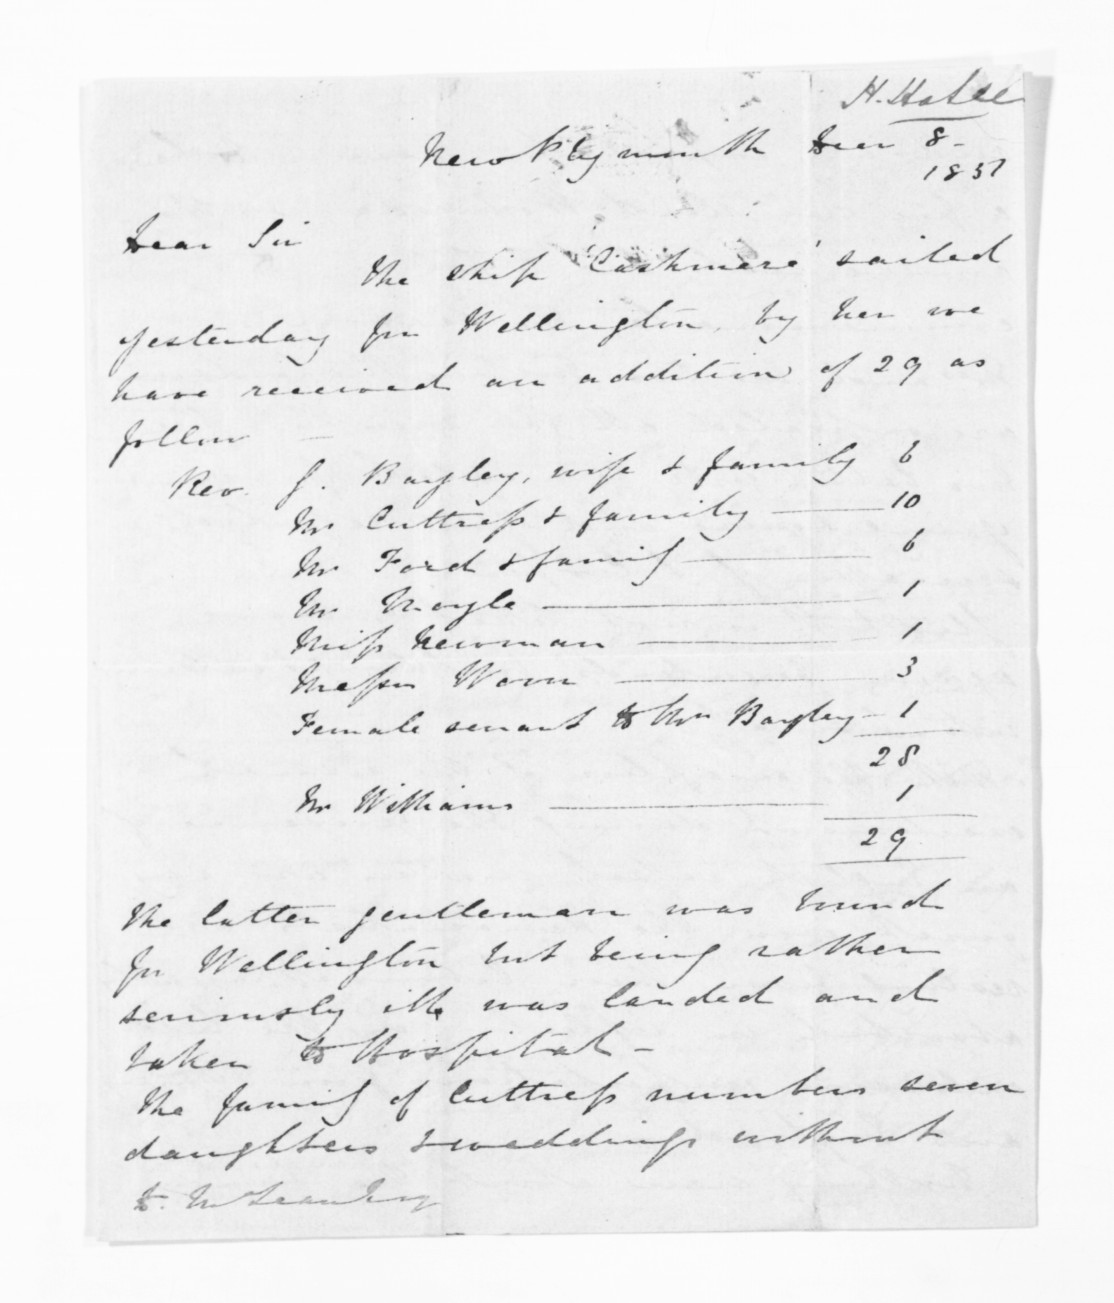 H. Halse
New Plymouth Decr 8-
1851
Dear Sir
The Ship 'Cashmere' sailed
yesterday for Wellington, by her we
have received an addition of 29 as
follow -
Rev. Bayley, wife & family 6
Mr Cuttress & family 10
Mr Ford & family 6
Mr Moyle 1
Miss Newman 1
Messrs Woon 3
Female servant to Mrs Bayley 1
28
Mr Williams 1
29
The latter gentleman was bound
for Wellington but being rather
seriously ill was landed and
taken to Hospital -
The family of Cuttress numbers seven
daughters & weddings without
D. McLean Esq